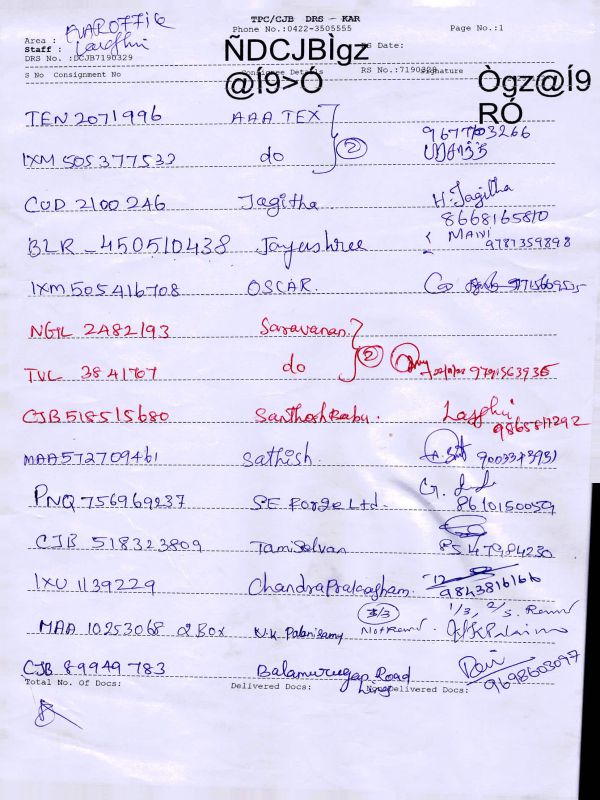 TPC/CJB DRS - KAR
Phone No.:0422-3505555 Page No.:1
Area :
Staff : Lasghi
DRS No. :DCJB7190329 ÑDCJBÌgz DRS Date:
S No Consignment No Consignee Details RS No.:7190329 Signature
@Í9>Ó Ògz@Í9
RÓ
TEN 2071996 AAA TEX 9677703266
IXM 505377532 do (2)
COD 2100246 Jagitha H. Jagitha
8668165810
BLR - 450510438 Jayashree MANI 9787359898
IXM 505416708 OSCAR.
NGIL 2482193 Saravanan
TVL 3841707 do (2)
CJB 518515680 Santhosh Babu. Lasghi
9865817292
MAA 572709461 Sathish.
PNQ 756969237 SE Forge Ltd. 8610150059
CJB 518323809 Tamiselvan 8547984230
IXU 1139229 Chandraprakasham 9843816166
MAA 10253068 2 Box N.K. Palanisamy 3/3
CJB 89949783 Balamurugan Road Lines 9698603097
Total No. Of Docs: Delivered Docs: Non-Delivered Docs: